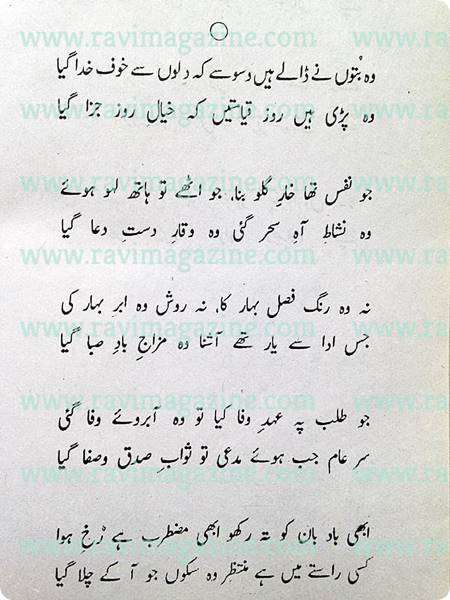 www.ravimagazine.com
وہ بُتوں نے ڈالے ہیں وسوسے کہ دِلوں سے خوف خدا گیا
وہ پڑی ہیں روز قیامتیں کہ خیالِ روز جزا گیا
جو نفس تھا خارِ گلو بنا، جو اٹھے تو ہاتھ لہو ہوئے
وہ نشاطِ آہِ سحر گئی وہ وقارِ دستِ دعا گیا
نہ وہ رنگ فصل بہار کا، نہ روش وہ ابر بہار کی
جس ادا سے یار تھے آشنا وہ مزاجِ بادِ صبا گیا
جو طلب پہ عہدِ وفا کیا تو وہ آبروئے وفا گئی
سرِ عام جب ہوئے مدعی تو ثوابِ صدق وصفا گیا
ابھی بادبان کو تہ رکھو ابھی مضطرب ہے رُخِ ہوا
کسی راستے میں ہے منتظر وہ سکوں جو آ کے چلا گیا